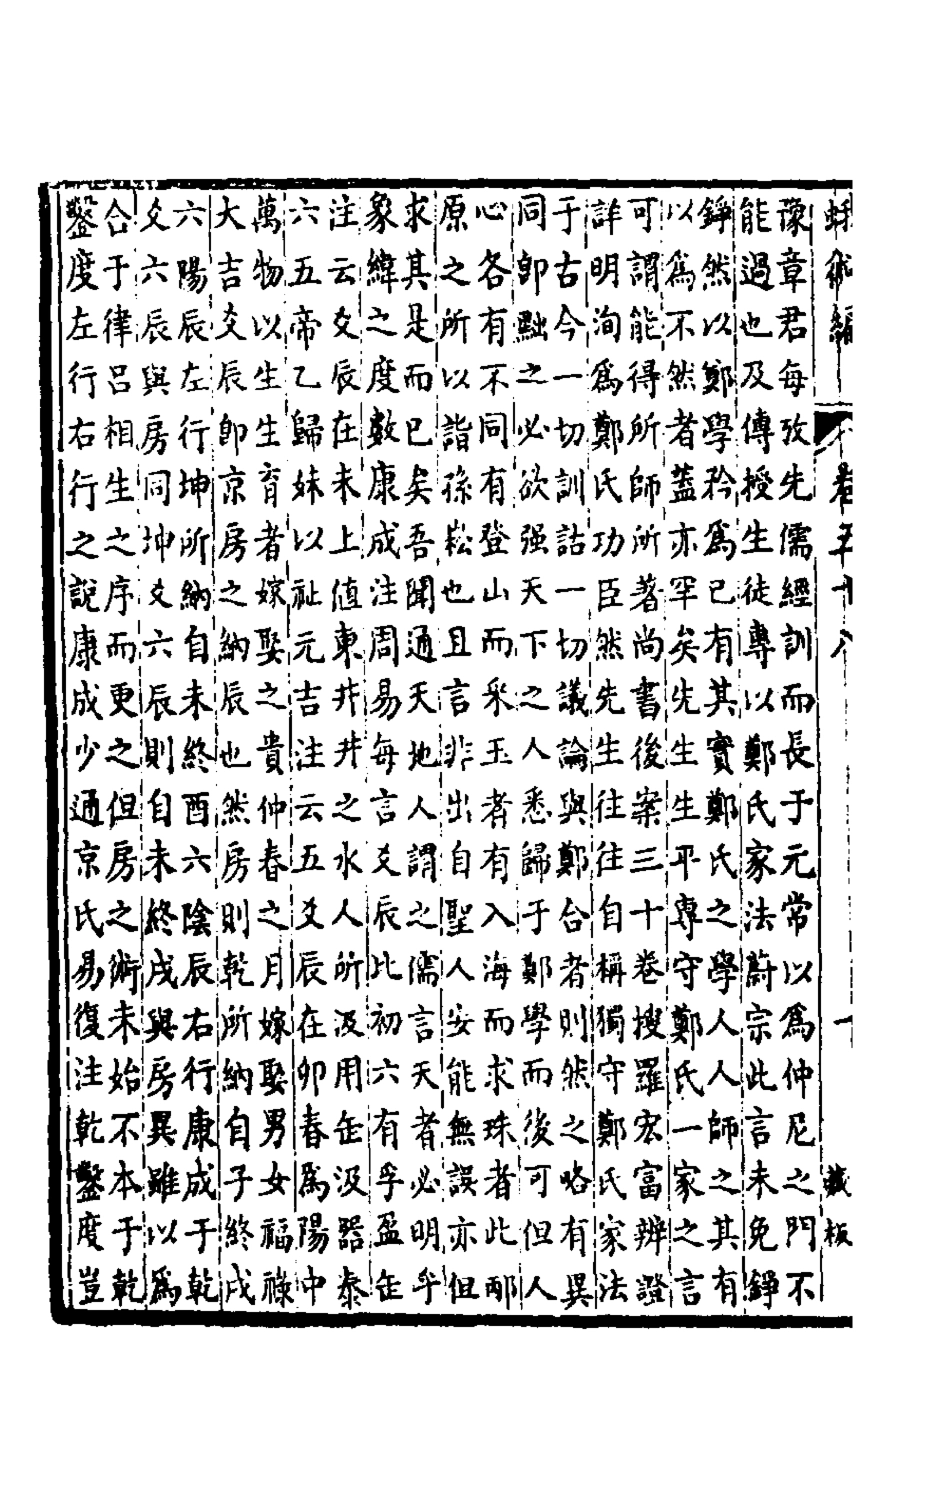 蛾術編 卷五十八 一 藏板
豫章君每攷先儒經訓而長于元常以為仲尼之門不
能過也及傳授生徒專以鄭氏家法蔚宗此言未免錚
錚然以鄭學矜為已有其實鄭氏之學人人師之其有
以為不然者蓋亦罕矣先生生平專守鄭氏一家之言
可謂能得所師所著尚書後案三十卷搜羅宏富辨證
詳明洵為鄭氏功臣然先生往往自稱獨守鄭氏家法
于古今一切訓詁一切議論與鄭合者則然之略有異
同卽黜之必欲强天下之人悉歸于鄭學而後可但人
心各有不同有登山而采玉者有入海而求珠者此邴
原之所以詣孫崧也且言非出自聖人安能無誤亦但
求其是而已矣吾聞通天地人謂之儒言天者必明乎
象緯之度數康成注周易每言爻辰比初六有孚盈缶
注云爻辰在未上值東井井之水人所汲用缶汲器泰
六五帝乙歸妹以祉元吉注云五爻辰在卯春為陽中
萬物以生生育者嫁娶之貴仲春之月嫁娶男女福祿
大吉爻辰卽京房之納辰也然房則乾所納自子終戌
六陽辰左行坤所納自未終酉六陰辰右行康成于乾
爻六辰與房同坤爻六辰則自未終戌與房異雖以為
合于律呂相生之序而更之但房之術未始不本于乾
鑿度左行右行之說康成少通京氏易復注乾鑿度豈